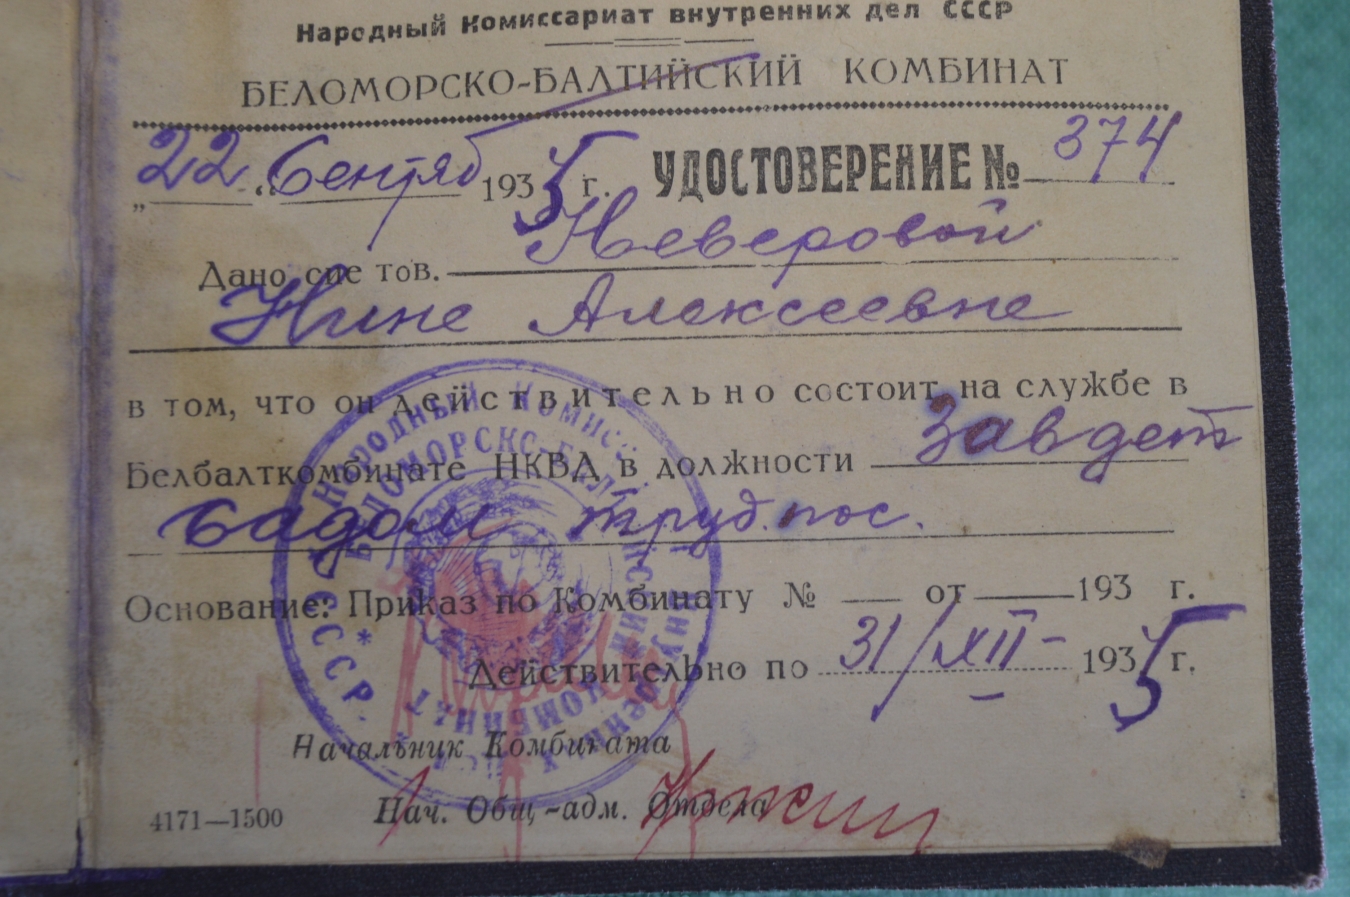 Народный Комиссариат внутренних дел СССР
БЕЛОМОРСКО-БАЛТИЙСКИЙ КОМБИНАТ
„22“ Сентяб 1935 г. УДОСТОВЕРЕНИЕ № 374
Дано сие тов. Неверовой
Нине Алексеевне
в том, что он действительно состоит на службе в
Белбалткомбинате НКВД в должности Завдет
садом труд.пос.
Основание: Приказ по Комбинату № — от — 193 г.
Действительно по 31/XII- 1935 г.
Начальник Комбината
Нач. Общ-адм. Отдела
4171—1500